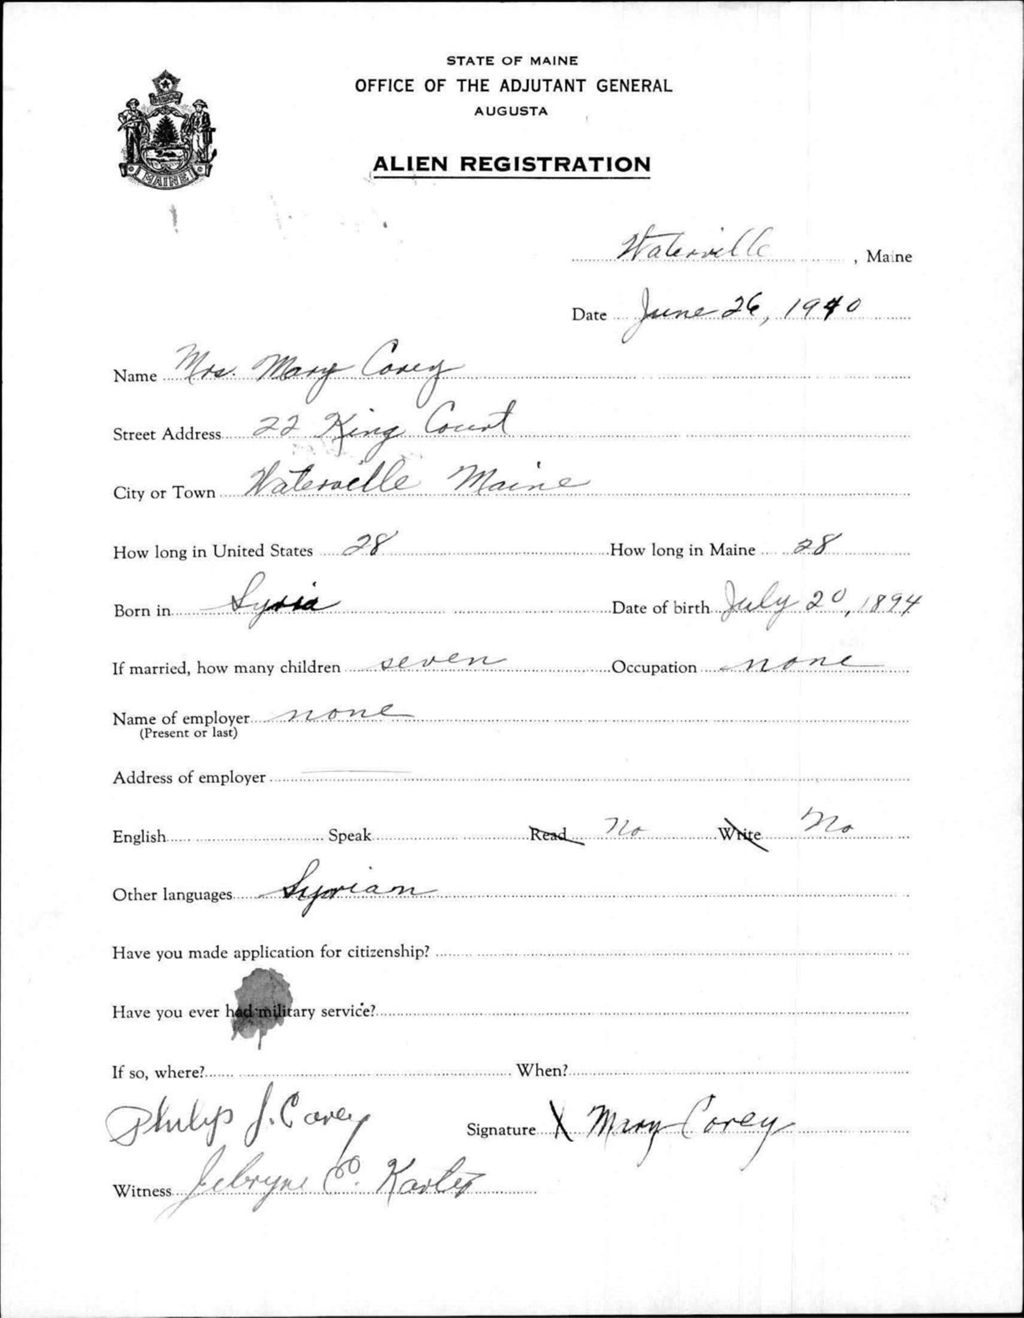 STATE OF MAINE
OFFICE OF THE ADJUTANT GENERAL
AUGUSTA
ALIEN REGISTRATION
MAINE
Waterville, Maine
Date June 26, 1940
Name Mrs. Mary Corey
Street Address 22 King Court
City or Town Waterville Maine
How long in United States 28 How long in Maine 28
Born in Syria Date of birth July 20, 1894
If married, how many children seven Occupation none
Name of employer none
(Present or last)
Address of employer
English Speak Read No Write No
Other languages Syrian
Have you made application for citizenship?
Have you ever had military service?
If so, where? When?
Philip J. Corey
Signature X Mary Corey
Witness